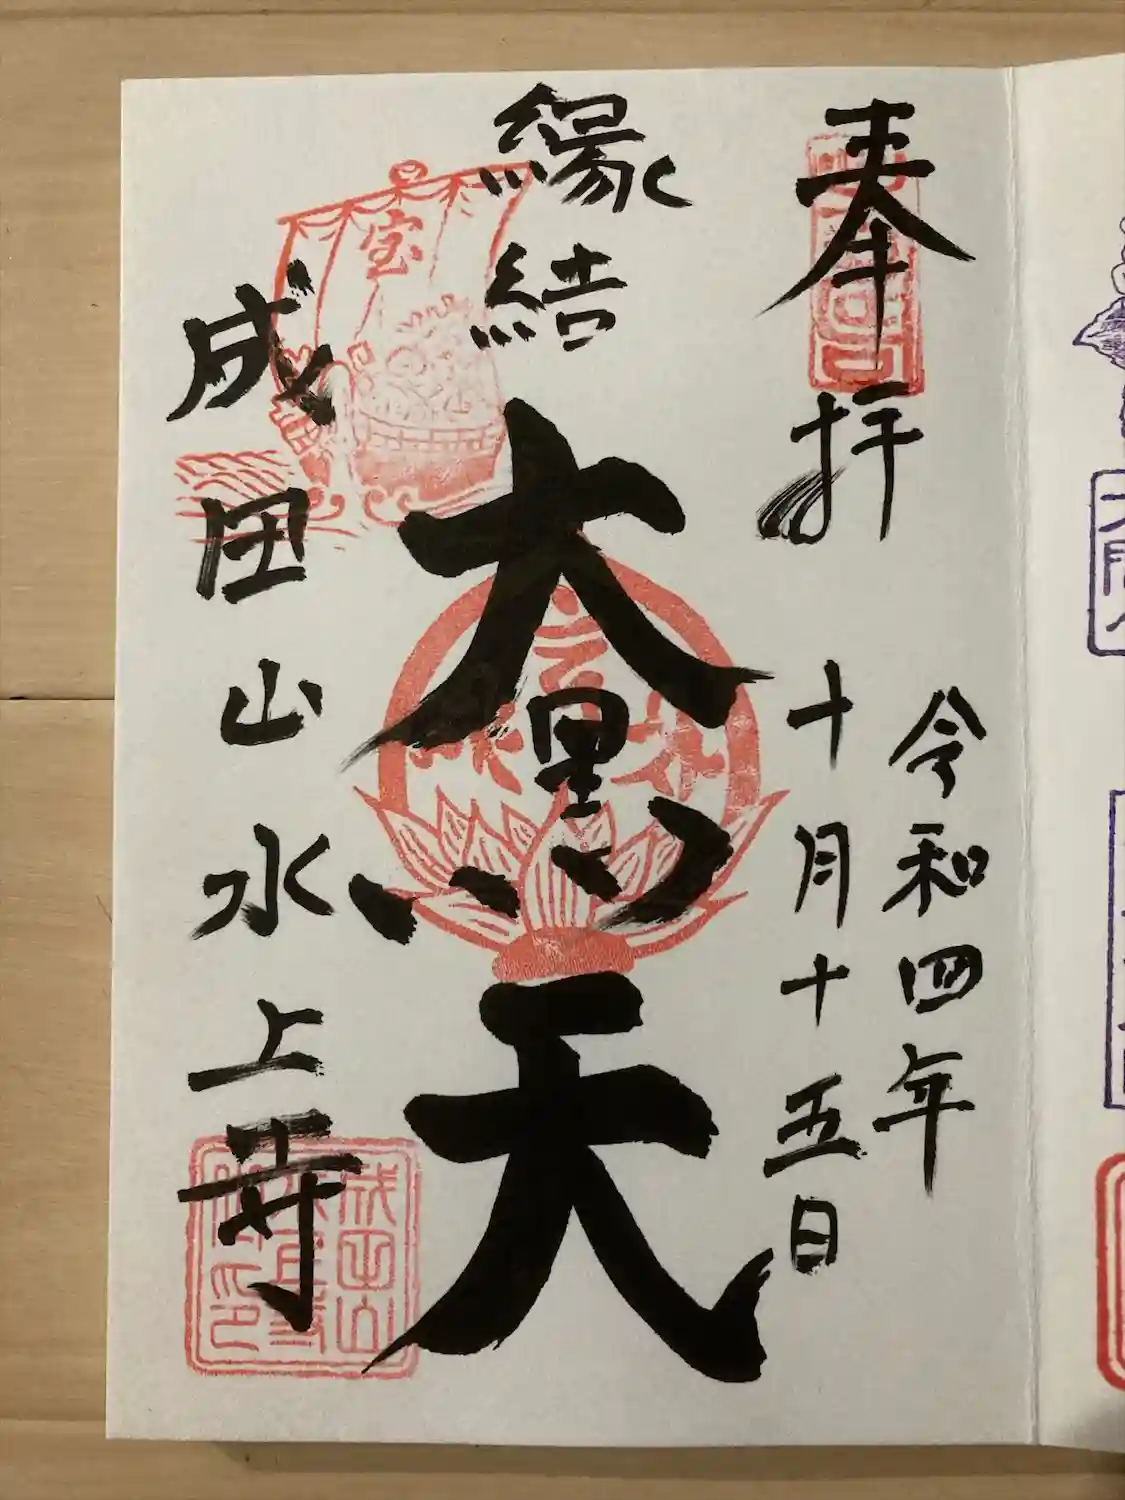 奉拝
令和四年
十月十五日
縁結
大黒天
宝
成田山水上寺
成田山